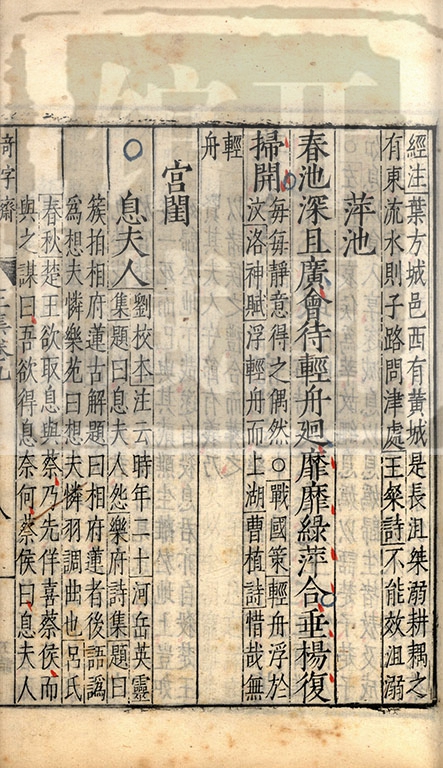 經注葉方城邑西有黃城是長沮桀溺耕耦之
有東流水則子路問津處王粲詩不能效沮溺
萍池
春池深且廣會待輕舟迴靡靡綠萍合垂楊復
掃開
每每靜意得之偶然○戰國策輕舟浮於
汶洛神賦浮輕舟而上湖曹植詩惜哉無
輕
舟
宮閨
息夫人
劉校本注云時年二十河岳英靈
集題曰息夫人怨樂府詩集題曰
簇拍相府蓮古解題曰相府蓮者後語譌
為想夫憐樂苑曰想夫憐羽調曲也呂氏
春秋楚王欲取息與蔡乃先佯喜蔡侯而
與之謀曰吾欲得息奈何蔡侯曰息夫人
奇字齋